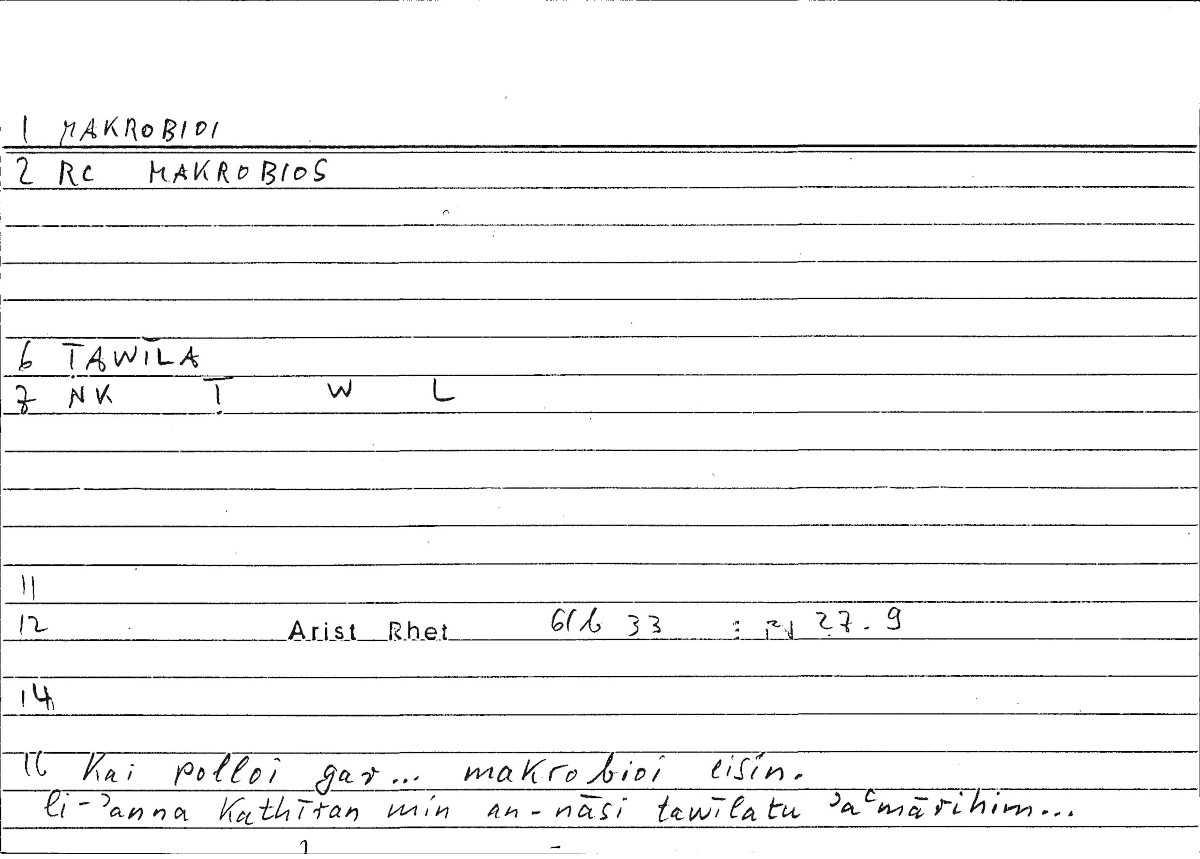 1 MAKROBIOI
2 RC MAKROBIOS
6 ṬAWĪLA
7 NK Ṭ W L
11
12 Arist Rhet 61b 33 27.9
14
16 Kai polloi gar... makrobioi eisín.
li-ʾanna kathīran min an-nāsi tawīlatu ʾaʿmārihim...